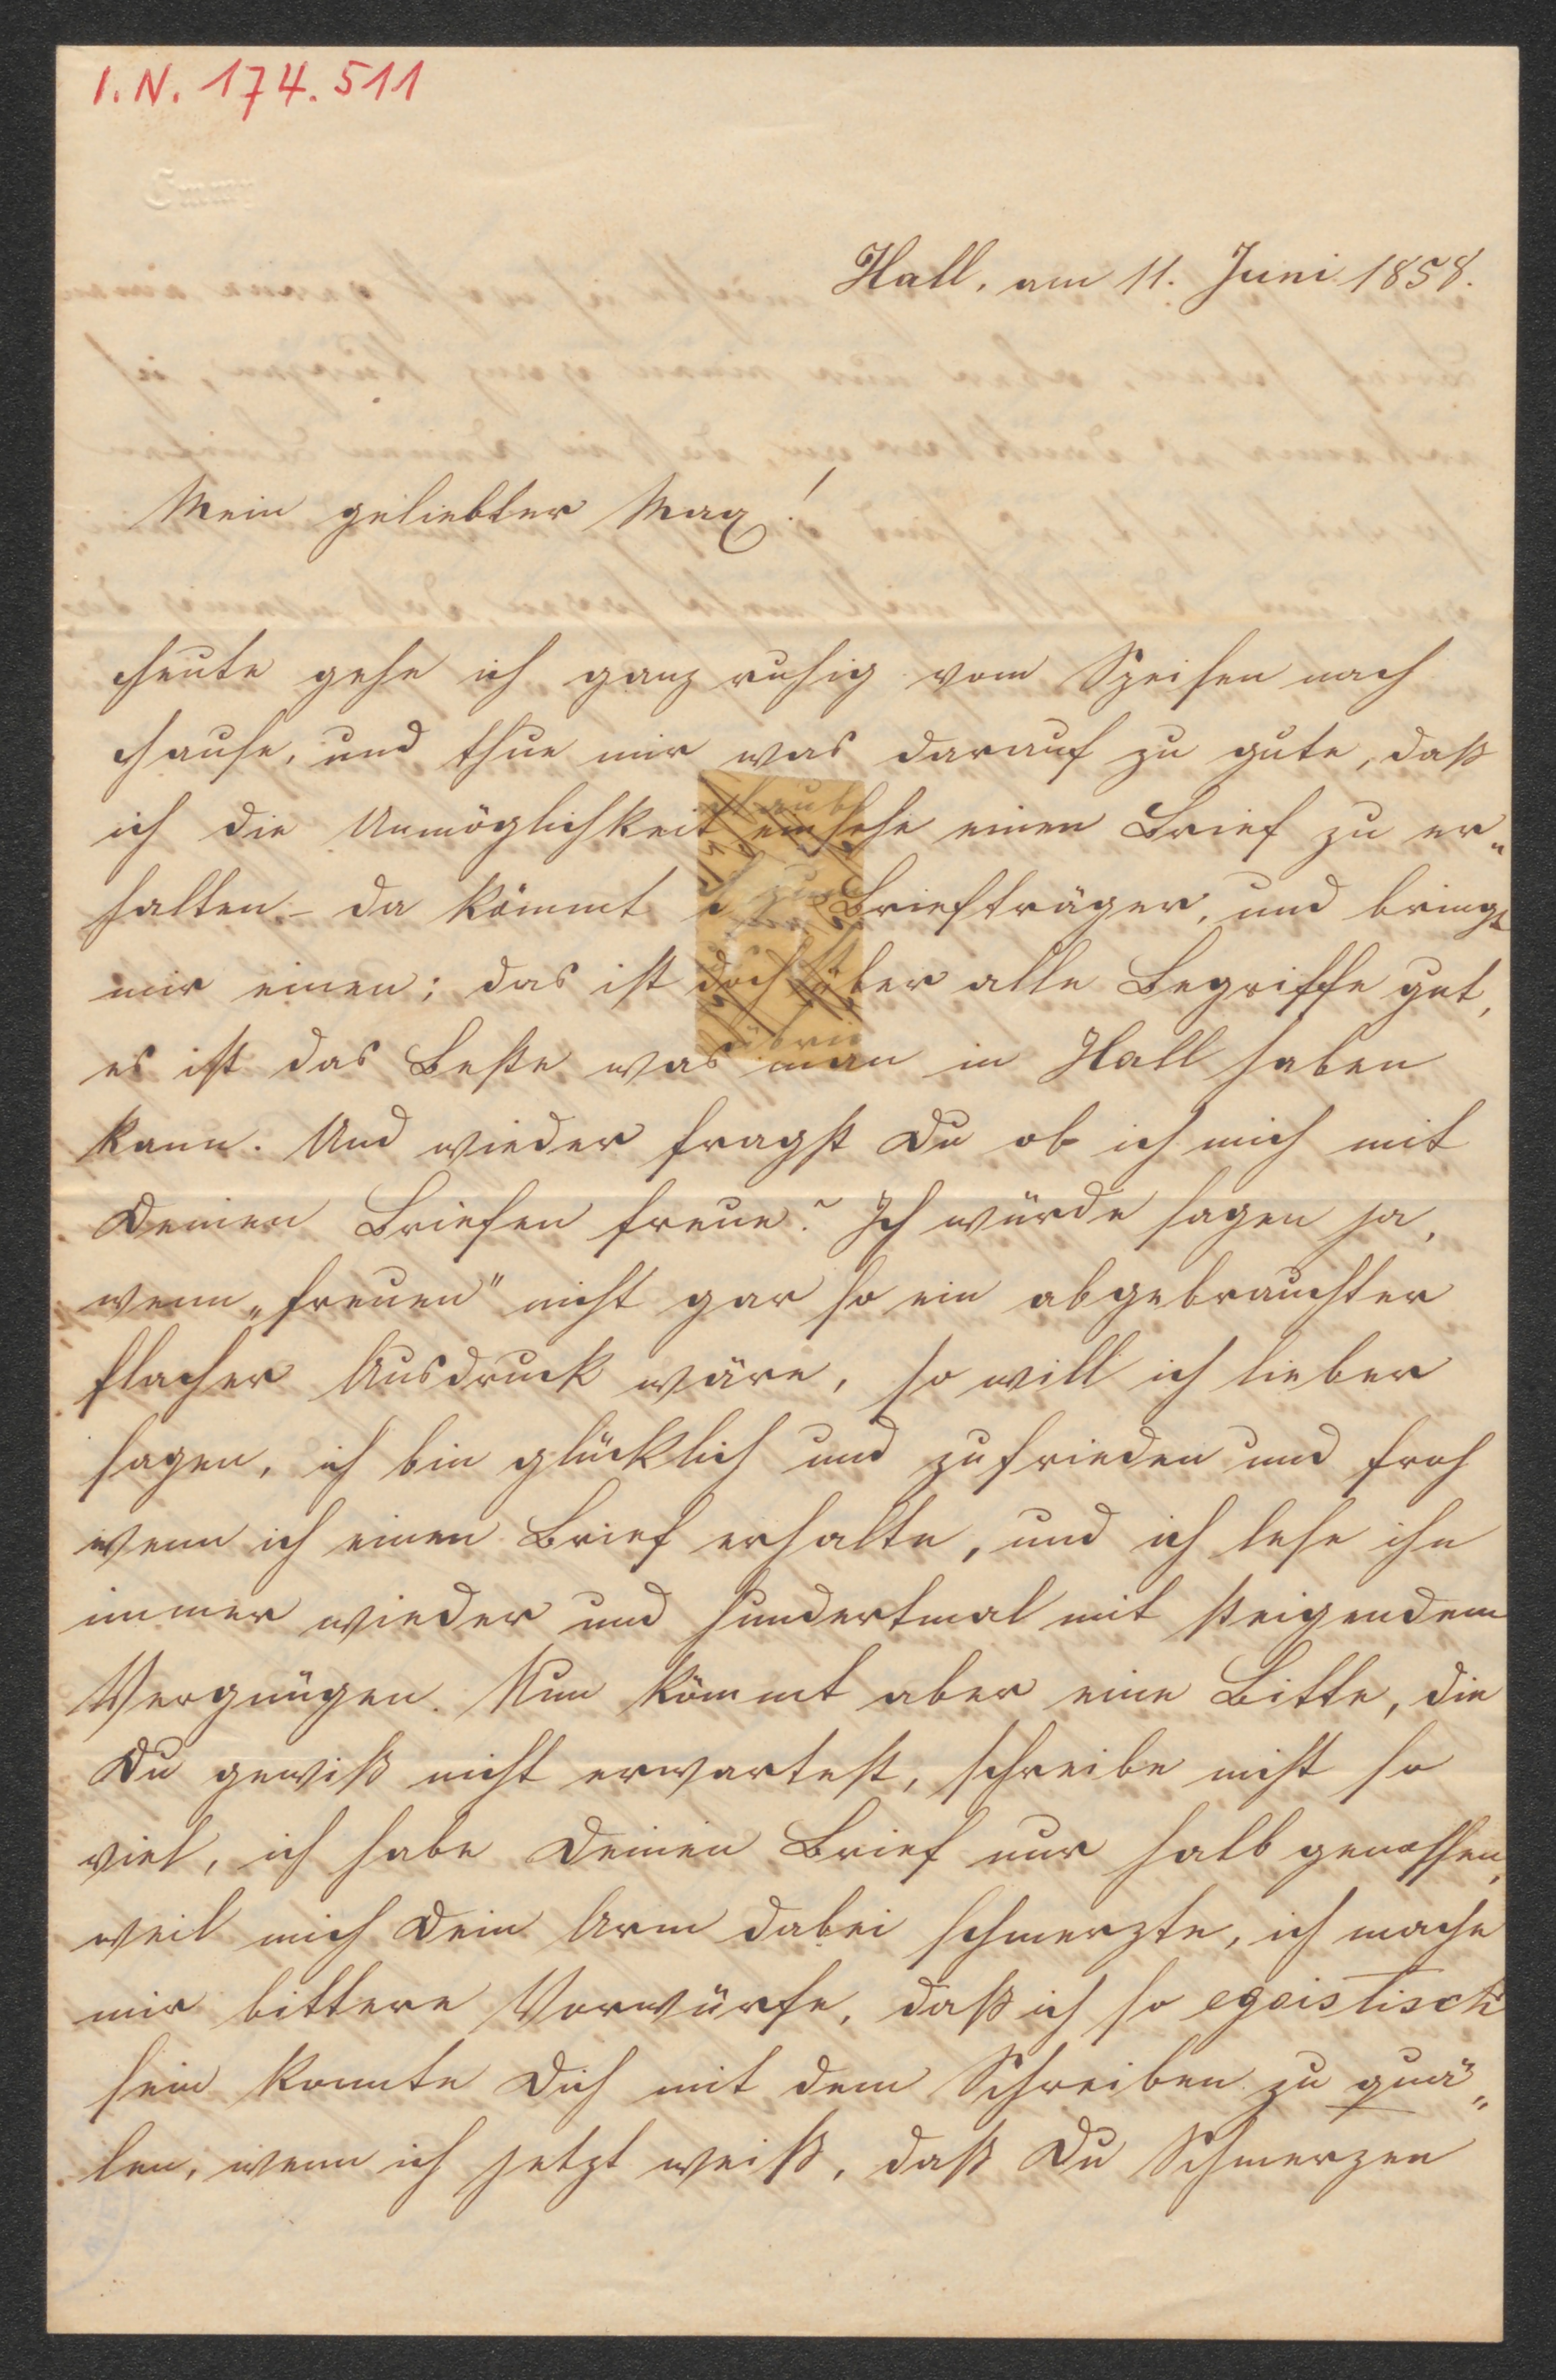 I.N. 174.511
Emmy
Hall, am 11. Juni 1858.
Mein geliebter Max!
Heute gehe ich ganz ruhig vom Speisen nach
Hause, und thue mir was darauf zu gute, daß
ich die Unmöglichkeit einsehe einen Brief zu er„
halten – da kömmt d Briefträger, und bringt
mir einen; das ist doch über alle Begriffe gut,
es ist das Beste was man in Hall haben
kann. Und wieder fragst Du ob ich mich mit
Deinen Briefen freue? Ich würde sagen ja,
wenn „freuen" nicht gar so ein abgebrauchter
flacher Ausdruck wäre, so will ich lieber
sagen, ich bin glücklich und zufrieden und froh
wenn ich einen Brief erhalte, und ich lese ihn
immer wieder und hundertmal mit steigendem
Vergnügen. Nun kömmt aber eine Bitte, die
Du gewiß nicht erwartest, schreibe nicht so
viel, ich habe Deinen Brief nur halb genossen,
weil mich Dein Arm dabei schmerzte, ich mache
mir bittere Vorwürfe, daß ich so egoistisch
sein konnte Dich mit dem Schreiben zu quä„
len, wenn ich jetzt weiß, daß Du Schmerzen